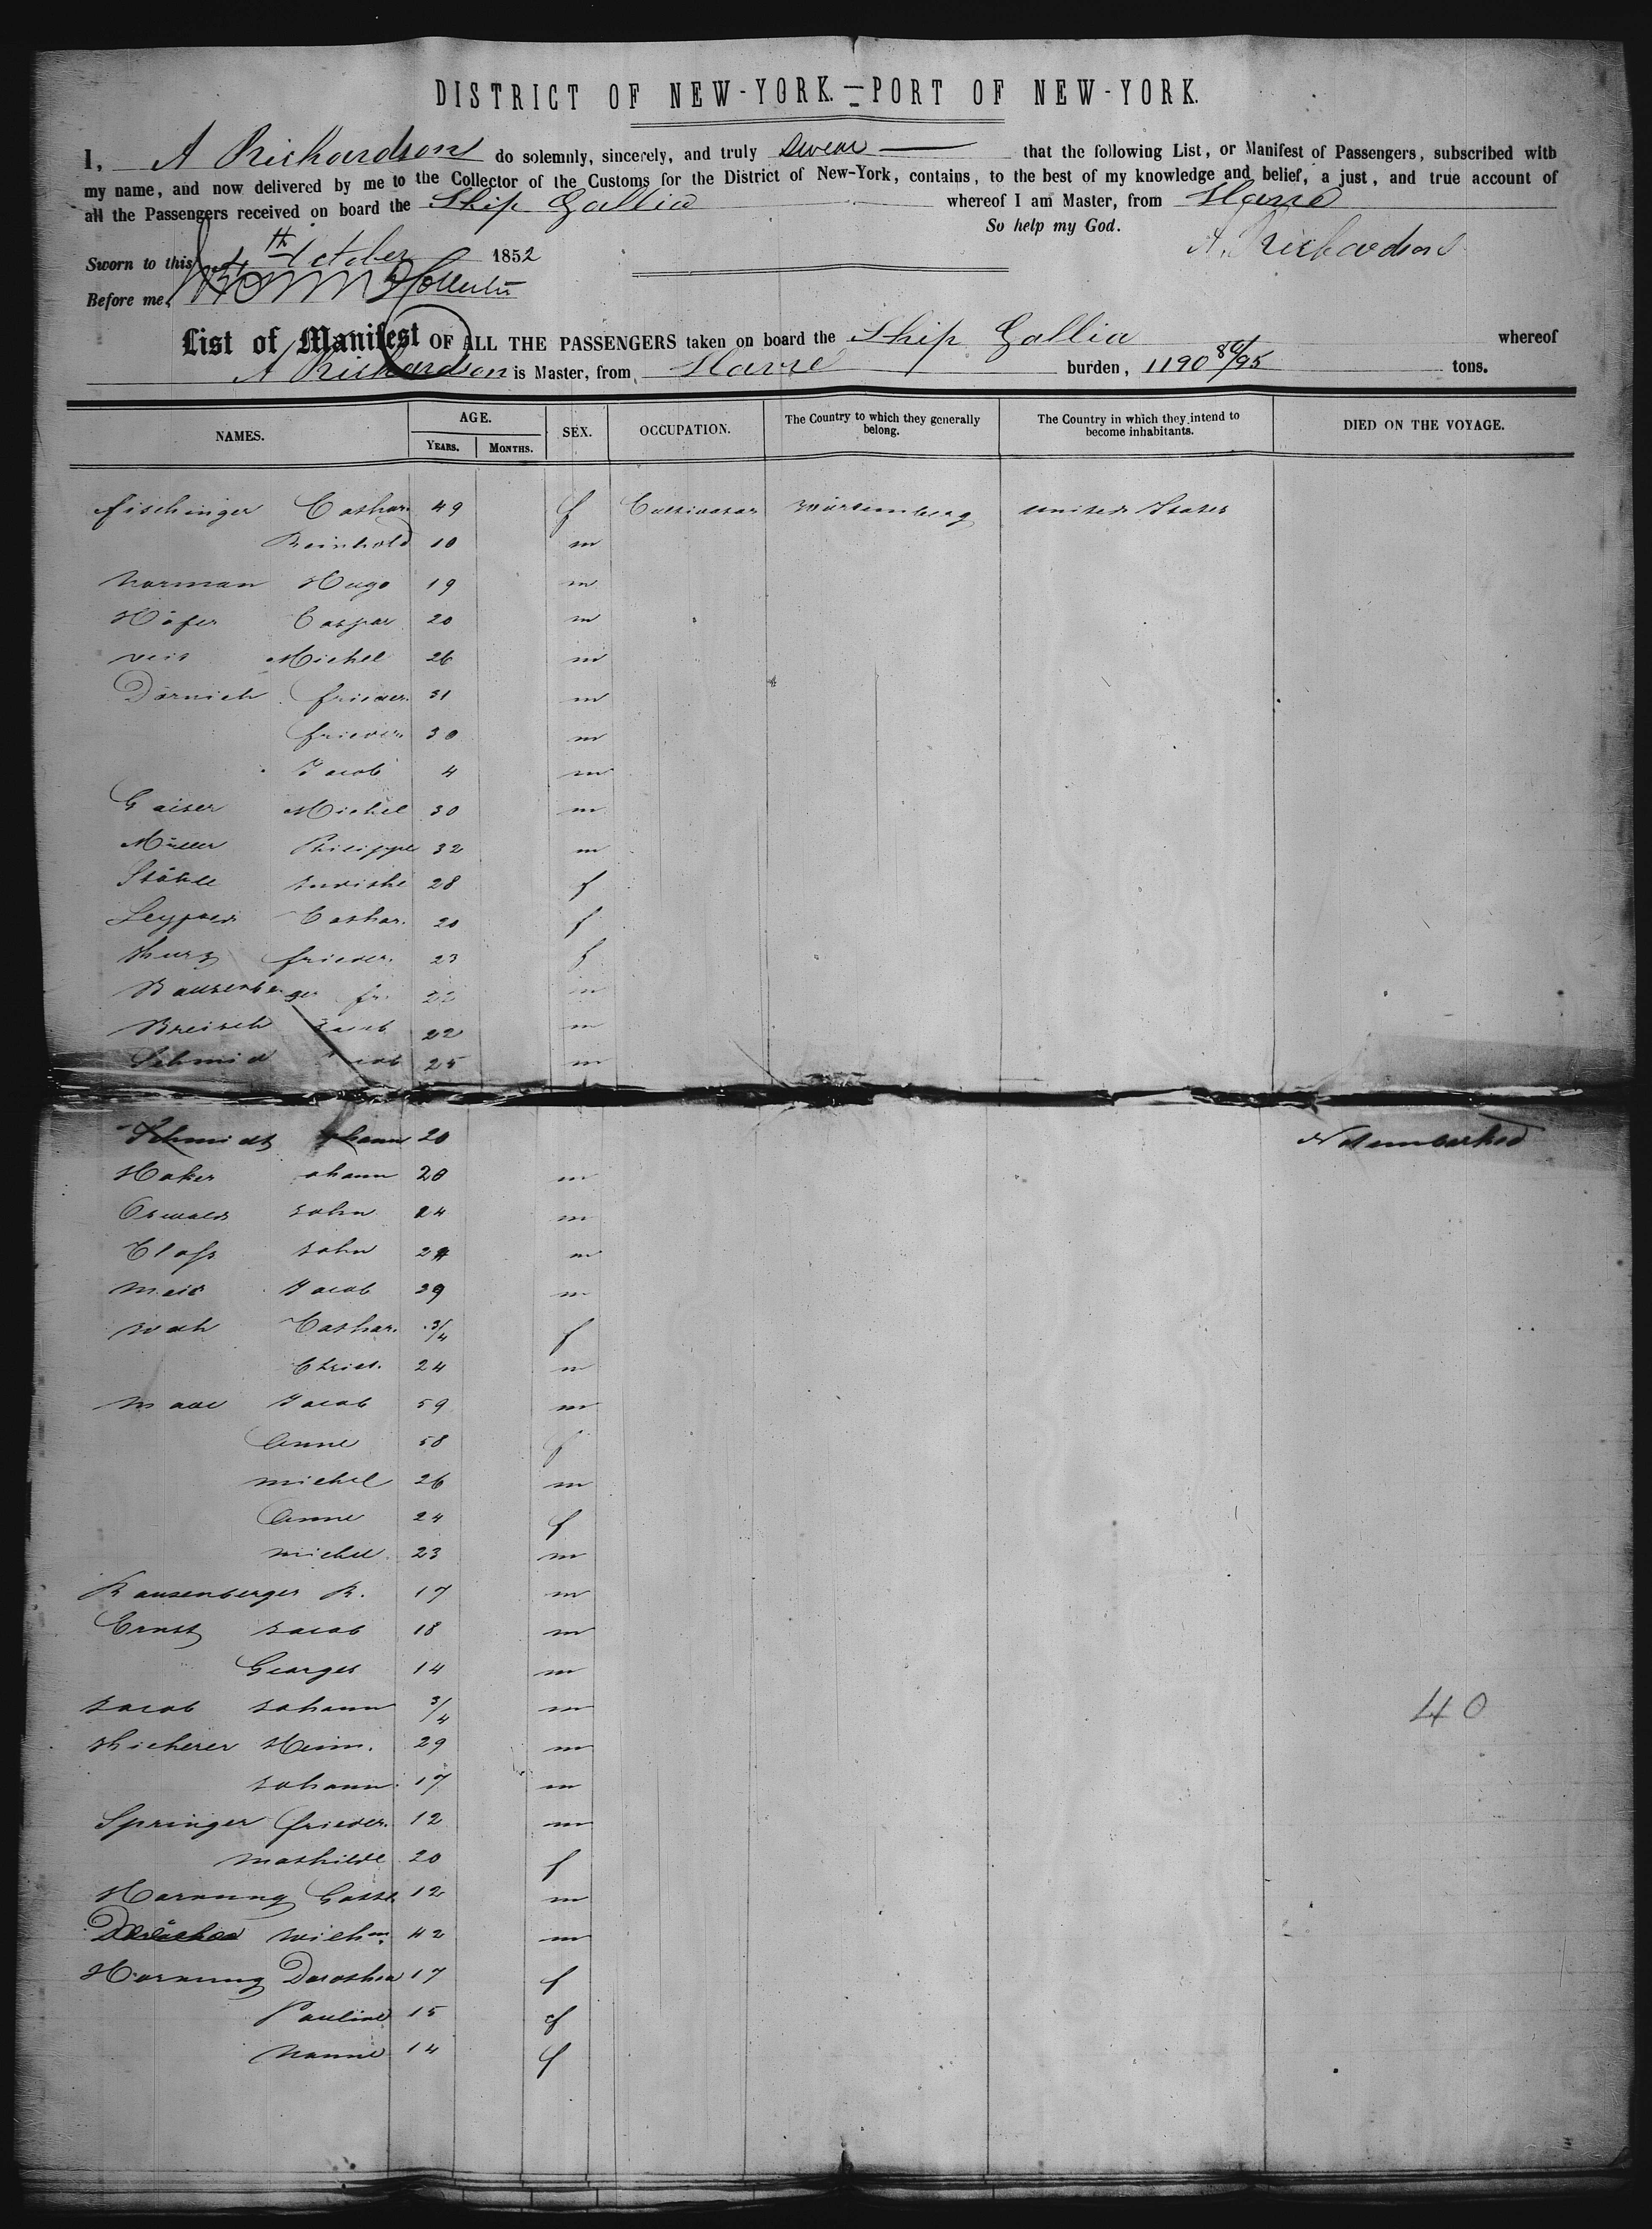 DISTRICT OF NEW-YORK.—PORT OF NEW-YORK.
I, A Richardson do solemnly, sincerely, and truly swear that the following List, or Manifest of Passengers, subscribed with
my name, and now delivered by me to the Collector of the Customs for the District of New-York, contains, to the best of my knowledge and belief, a just, and true account of
all the Passengers received on board the Ship Gallia whereof I am Master, from Havre
So help my God.
Sworn to this 4th October 1852 A. Richardson
Before me,
List of Manifest OF ALL THE PASSENGERS taken on board the Ship Gallia whereof
A Richardson is Master, from Havre burden, 1190 80/95 tons.
NAMES. AGE. SEX. OCCUPATION. The Country to which they generally belong. The Country in which they intend to become inhabitants. DIED ON THE VOYAGE.
YEARS. MONTHS.
Fischinger Cathar. 49 f Cultivator Würtemberg United States
Reinhold 10 m
Norman Hugo 19 m
Höfer Caspar 20 m
Veit Michel 26 m
Dörnich frieder. 31 m
frieder. 30 m
Jacob 4 m
Gaiser Michel 30 m
Müller Philippe 32 m
Stähle 28 f
Cathar. 20 f
Kurz frieder. 23 f
Rausenberger fr. 22 m
Breisch Jacob 22 m
Schmid Jacob 25 m
Schmidt Johann 20 Not embarked
Haker Johann 20 m
Oswald John 24 m
Class John 24 m
Jacob 29 m
Cathar. 3/4 f
Christ. 24 m
Jacob 59 m
Anne 58 f
michel 26 m
Anne 24 f
michel 23 m
Rausenberger R. 17 m
Ernst Jacob 18 m
Georges 14 m
Jacob Johann 3/4 m
40
Shicherer Heinr. 29 m
Johann 17 m
Springer frieder. 12 m
Mathilde 20 f
Hornung Gottl. 12 m
Wilhm. 42 m
Hornung Dorothea 17 f
Pauline 15 f
Nanne 14 f